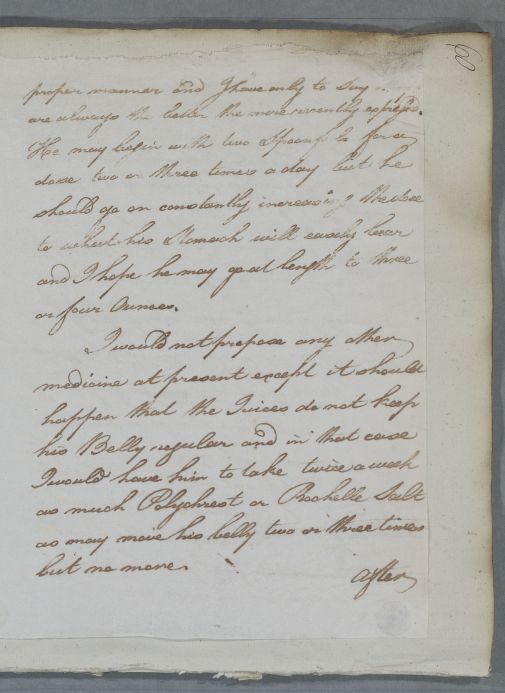 60
proper manner and I have only to say
are always the better the more recently expressed.
He may begin with two Spoonfuls for a
dose two or three times a day but he
should go on constantly increasing the dose
to what his Stomach will easily bear
and I hope he may go at length to three
or four Ounces.
I would not propose any other
medicine at present except it should
happen that the Juices do not keep
his Belly regular and in that case
I would have him to take twice a week
as much Polychrest or Rochelle Salt
as may move his belly two or three times
but no more.
after